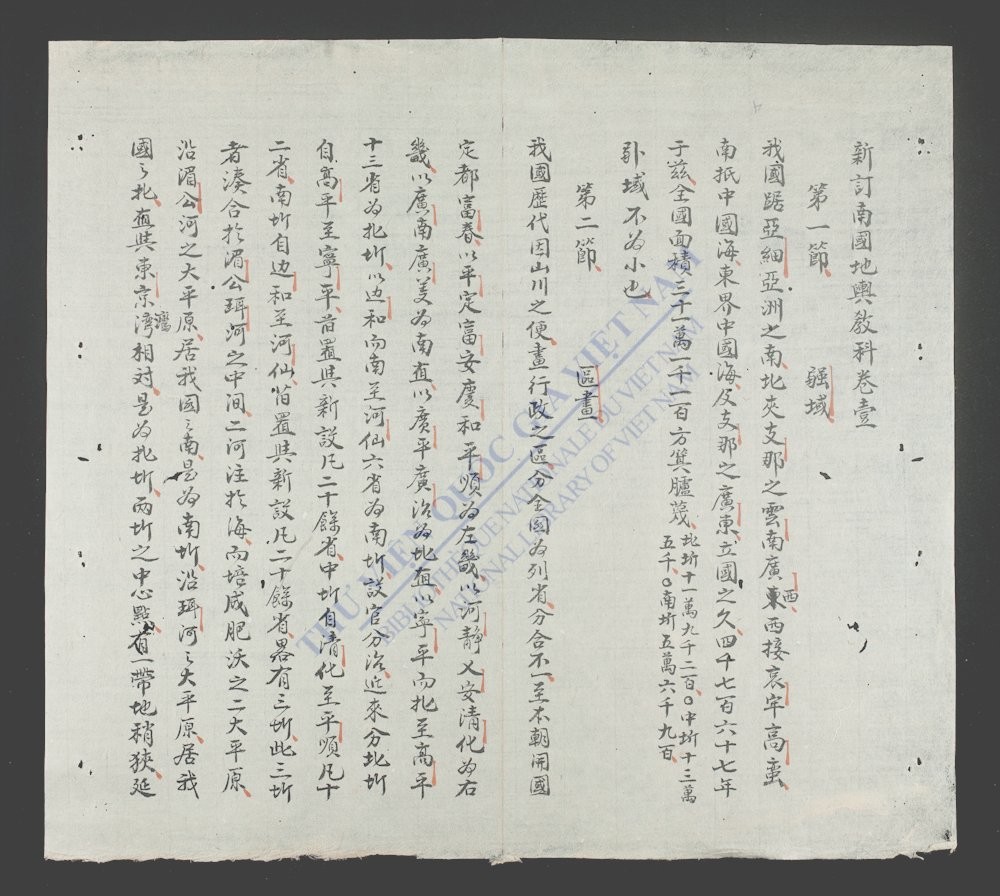 新訂南國地輿教科卷壹
第一節 疆域
我國踞亞細亞洲之南北夾支那之雲南廣東西西接哀牢高蛮
南抵中國海東界中國海及支那之廣東立國之久四千七百六十七年
于茲全國面積三十一萬一千一百方箕臚蔑北圻十一萬九千二百〇中圻十三萬五千〇南圻五萬六千九百
卧域不为小也
第二節 區畫
我國歷代因山川之便畫行政之區分全國为列省分合不一至本朝開國
定都富春以平定富安慶和平順为左畿以河靜乂安清化为右
畿以廣南廣義为南直以廣平廣治为北直以寧平而北至高平
十三省为北圻以边和而南至河仙六省为南圻設官分治近來分北圻
自高平至寧平皆置其新設凡二十餘省中圻自清化至平順凡十
二省南圻自边和至河仙皆置其新設凡二十餘省畧有三圻此三圻
者湊合於湄公珥河之中间二河注於海而培成肥沃之二大平原
沿湄公河之大平原居我国之南是为南圻沿珥河之大平原居我
國之北直與東京湾灣相对是为北圻兩圻之中心點有一帶地稍狹延
THƯ VIỆN QUỐC GIA VIỆT NAM
BIBLIOTHÈQUE NATIONALE DU VIETNAM
NATIONAL LIBRARY OF VIETNAM